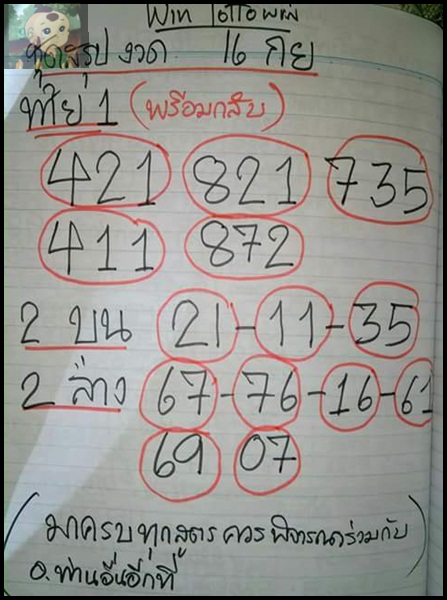 Win lotto แม่น
ชุดสรุป งวด 16 กย
ท้าย 1 (พร้อมกลับ)
421 821 735
411 872
2 บน 21-11-35
2 ล่าง 67-76-16-61
69 07
(มาครบทุกสูตร ควรพิจารณาร่วมกับ
อ.ท่านอื่นอีกที)